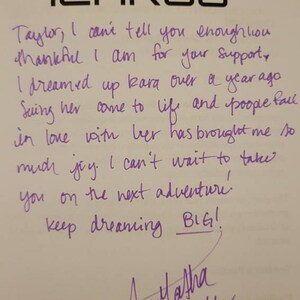 Taylor, I can't tell you enough how
thankful I am for your support,
I dreamed up Kara over a year ago
Seing her come to life and poople fall
in love with her has brought me so
much joy. I can't wait to take
you on the next adventure!
keep dreaming BIG!